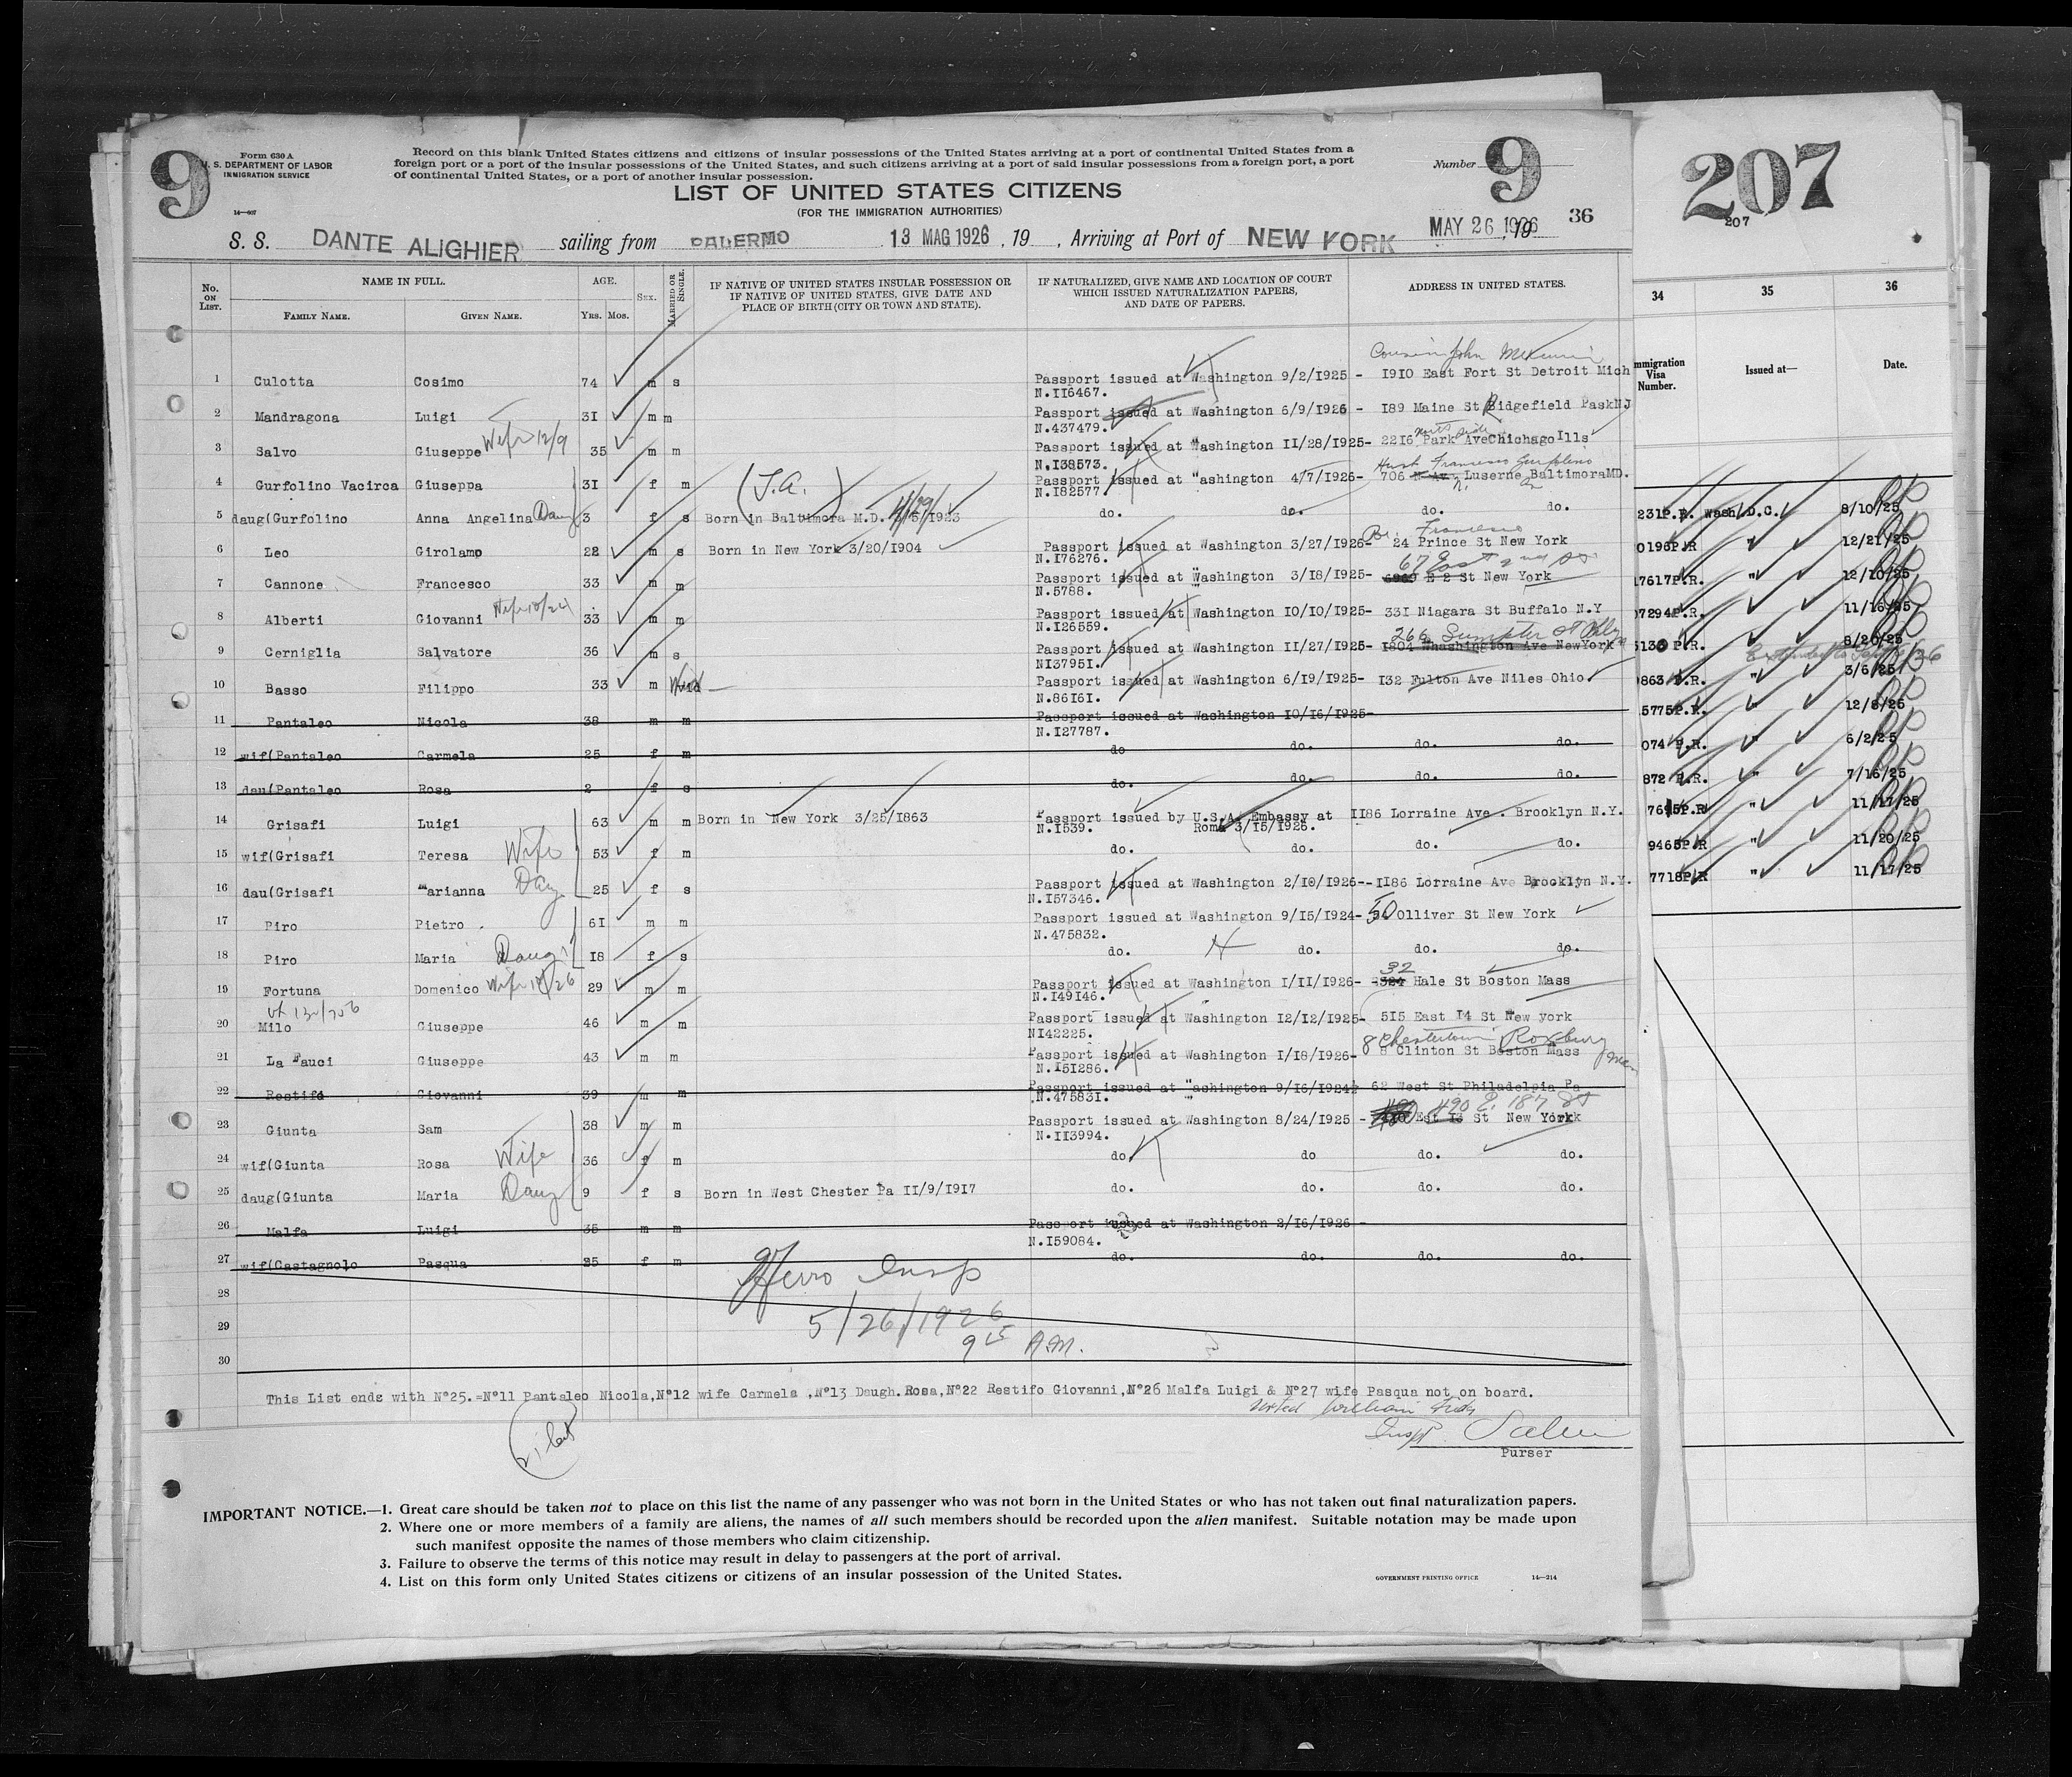 9
Form 630 A
U. S. DEPARTMENT OF LABOR
IMMIGRATION SERVICE
14—607
Record on this blank United States citizens and citizens of insular possessions of the United States arriving at a port of continental United States from a
foreign port or a port of the insular possessions of the United States, and such citizens arriving at a port of said insular possessions from a foreign port, a port
of continental United States, or a port of another insular possession.
LIST OF UNITED STATES CITIZENS
(FOR THE IMMIGRATION AUTHORITIES)
Number 9
36
S. S. DANTE ALIGHIER sailing from PALERMO 13 MAG 1926 , 19 , Arriving at Port of NEW YORK MAY 26 1926 , 19
No. ON LIST. NAME IN FULL. FAMILY NAME. GIVEN NAME. AGE. YRS. MOS. SEX. MARRIED OR SINGLE.
IF NATIVE OF UNITED STATES INSULAR POSSESSION OR
IF NATIVE OF UNITED STATES, GIVE DATE AND
PLACE OF BIRTH (CITY OR TOWN AND STATE).
IF NATURALIZED, GIVE NAME AND LOCATION OF COURT
WHICH ISSUED NATURALIZATION PAPERS,
AND DATE OF PAPERS.
ADDRESS IN UNITED STATES.
Cousin John
1 Culotta Cosimo 74 m s Passport issued at Washington 9/2/1925 - 1910 East Fort St Detroit Mich
N.116467.
2 Mandragona Luigi 31 m m Passport issued at Washington 6/9/1926 - 189 Maine St Ridgefield PaskNJ
N.437479.
3 Salvo Giuseppe Wife 12/9 35 m m Passport issued at "ashington 11/28/1925- 2216 Park AveChichagoIlls
N.138573.
Husb Francesco Gurfolino
4 Gurfolino Vacirca Giuseppa 31 f m (T.A.) Passport issued at "ashington 4/7/1926- 706 N Av. Luserne BaltimoraMD.
N.182577
5 daug(Gurfolino Anna Angelina Daug 3 f s Born in Baltimora M.D. 4/5/1923 11/29/ do. do. do. do.
Br. Francesco
6 Leo Girolamo 22 m s Born in New York 3/20/1904 Passport issued at Washington 3/27/1926- 24 Prince St New York
N.176276.
67 East 2nd St
7 Cannone Francesco 33 m m Passport issued at Washington 3/18/1925- E 2 St New York
N.5788.
8 Alberti Giovanni Wife 10/24 33 m m Passport issued at Washington 10/10/1925- 331 Niagara St Buffalo N.Y
N.126559.
266 Sumpter St Bklyn
9 Cerniglia Salvatore 36 m s Passport issued at Washington 11/27/1925- 1804 Whashington Ave NewYork
N137951.
10 Basso Filippo 33 m Wid Passport issued at Washington 6/19/1925- 132 Fulton Ave Niles Ohio
N.86161.
11 Pantaleo Nicola 38 m m Passport issued at Washington 10/16/1925-
N.127787.
12 wif(Pantaleo Carmela 25 f m do do. do. do.
13 dau(Pantaleo Rosa 2 f s do. do. do. do.
14 Grisafi Luigi 63 m m Born in New York 3/25/1863 Passport issued by U.S.A. Embassy at 1186 Lorraine Ave . Brooklyn N.Y.
N.1539. Roma 3/15/1926.
15 wif(Grisafi Teresa Wife 53 f m do. do. do. do.
16 dau(Grisafi Marianna Daug 25 f s Passport issued at Washington 2/10/1926--1186 Lorraine Ave Brooklyn N.Y.
N.157346.
17 Piro Pietro 61 m m Passport issued at Washington 9/15/1924- 50 Olliver St New York
N.475832.
18 Piro Maria Daug 18 f s do. do. do. do.
19 Fortuna Domenico Wife 29 m m Passport issued at Washington 1/11/1926- 32 324 Hale St Boston Mass
N.149146.
20 Milo Giuseppe 46 m m Passport issued at Washington 12/12/1925- 515 East 14 St New york
N142225.
8 Roxbury
21 La Fauci Giuseppe 43 m m Passport issued at Washington 1/18/1926- 8 Clinton St Boston Mass
N.151286.
22 Restifo Giovanni 39 m m Passport issued at "ashington 9/16/1924 62 West St Philadelpia Pa
N.475831.
490 E. 187 St
23 Giunta Sam 38 m m Passport issued at Washington 8/24/1925 - Est 13 St New York
N.113994.
24 wif(Giunta Rosa Wife 36 f m do. do do. do.
25 daug(Giunta Maria Daug 9 f s Born in West Chester Pa 11/9/1917 do. do. do. do.
26 Malfa Luigi 35 m m Passport issued at Washington 2/16/1926 -
N.159084.
27 wif(Castagnolo Pasqua 25 f m do. do. do. do.
28
29
30
Insp
5/26/1926
9 15 A.M.
This List ends with Nº25.=Nº11 Pantaleo Nicola,Nº12 wife Carmela ,Nº13 Daugh.Rosa,Nº22 Restifo Giovanni,Nº26 Malfa Luigi & Nº27 wife Pasqua not on board.
Insp.
Purser
IMPORTANT NOTICE.—1. Great care should be taken not to place on this list the name of any passenger who was not born in the United States or who has not taken out final naturalization papers.
2. Where one or more members of a family are aliens, the names of all such members should be recorded upon the alien manifest. Suitable notation may be made upon
such manifest opposite the names of those members who claim citizenship.
3. Failure to observe the terms of this notice may result in delay to passengers at the port of arrival.
4. List on this form only United States citizens or citizens of an insular possession of the United States.
GOVERNMENT PRINTING OFFICE 14—214
207
207
34 35 36
mmigration
Visa
Number.
Issued at—
Date.
231P.R. Wash.D.C. 8/10/25
0196P.R " 12/21/25
7617P.R. " 12/10/25
7294P.R. " 11/16/25
513 P.R. " 8/20/25
863 P.R. " 3/6/25
5775P.R. " 12/8/25
074 P.R. " 6/2/25
872 P.R. " 7/16/25
7695P.R " 11/17/25
9465P.R " 11/20/25
7718P.R " 11/17/25